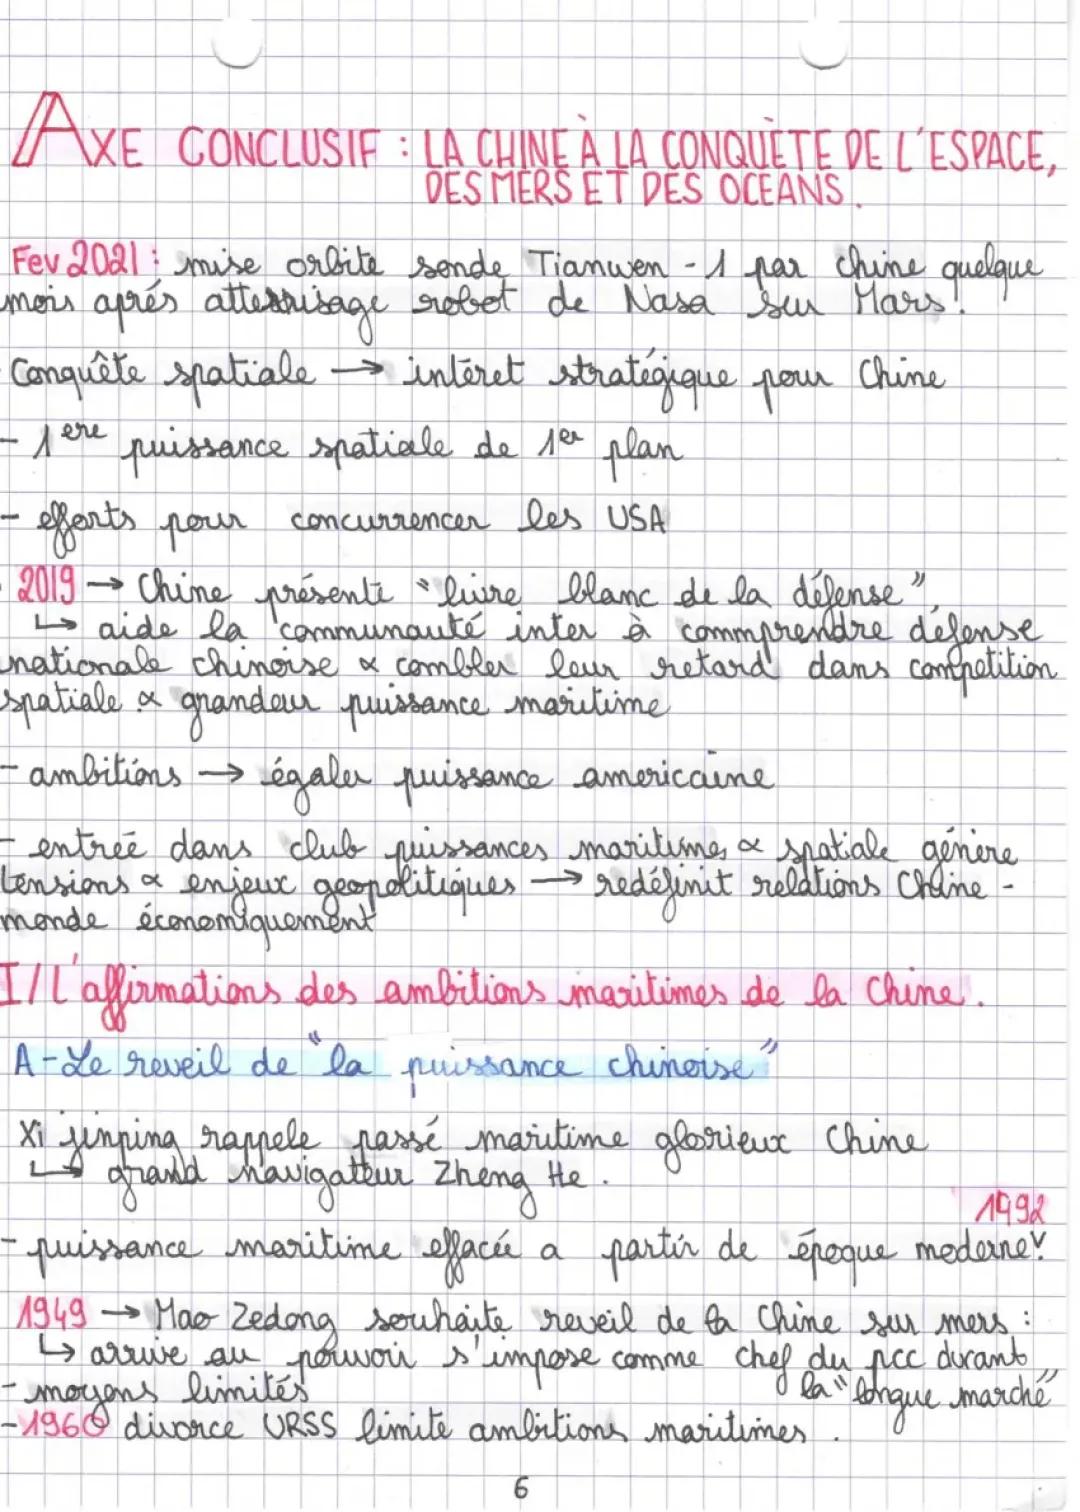 AXE CONCLUSIF : LA CHINE À LA CONQUÊTE DE L'ESPACE,
DES MERS ET DES OCEANS.
Fev 2021 : mise orbite sonde Tianwen -1 par Chine quelque
mois après atterrisage robot de Nasa sur Mars.
Conquête spatiale → intéret stratégique pour Chine
- 1ere puissance spatiale de 1er plan
- efforts pour concurrencer les USA
- 2019 → Chine présente "livre blanc de la défense"
↳ aide la communauté inter à commprendre défense
nationale chinoise & combler leur retard dans compétition
spatiale & grandeur puissance maritime
- ambitions → égaler puissance americaine
- entrée dans club puissances maritimes & spatiale génère
tensions & enjeux geopolitiques → redéfinit relations Chine -
monde économiquement
I/ L'affirmations des ambitions maritimes de la Chine.
A - Le reveil de "la puissance chinoise"
Xi jinping rappele passé maritime glorieux Chine
↳ grand navigatteur Zheng He.
1992
- puissance maritime effacée a partir de époque moderne
1949 → Mao Zedong souhaite reveil de la Chine sur mers :
↳ arrive au pouvoir s'impose comme chef du pcc durant
la "longue marché"
- moyens limités
- 1960 divorce URSS limite ambitions maritimes.
6